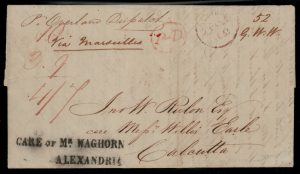 Pr Overland Despatch
Via Marseilles
52
G. W. W.
4/7
Jno W.
care Messrs Willis Earle
Calcutta
CARE OF Mr WAGHORN
ALEXANDRIA